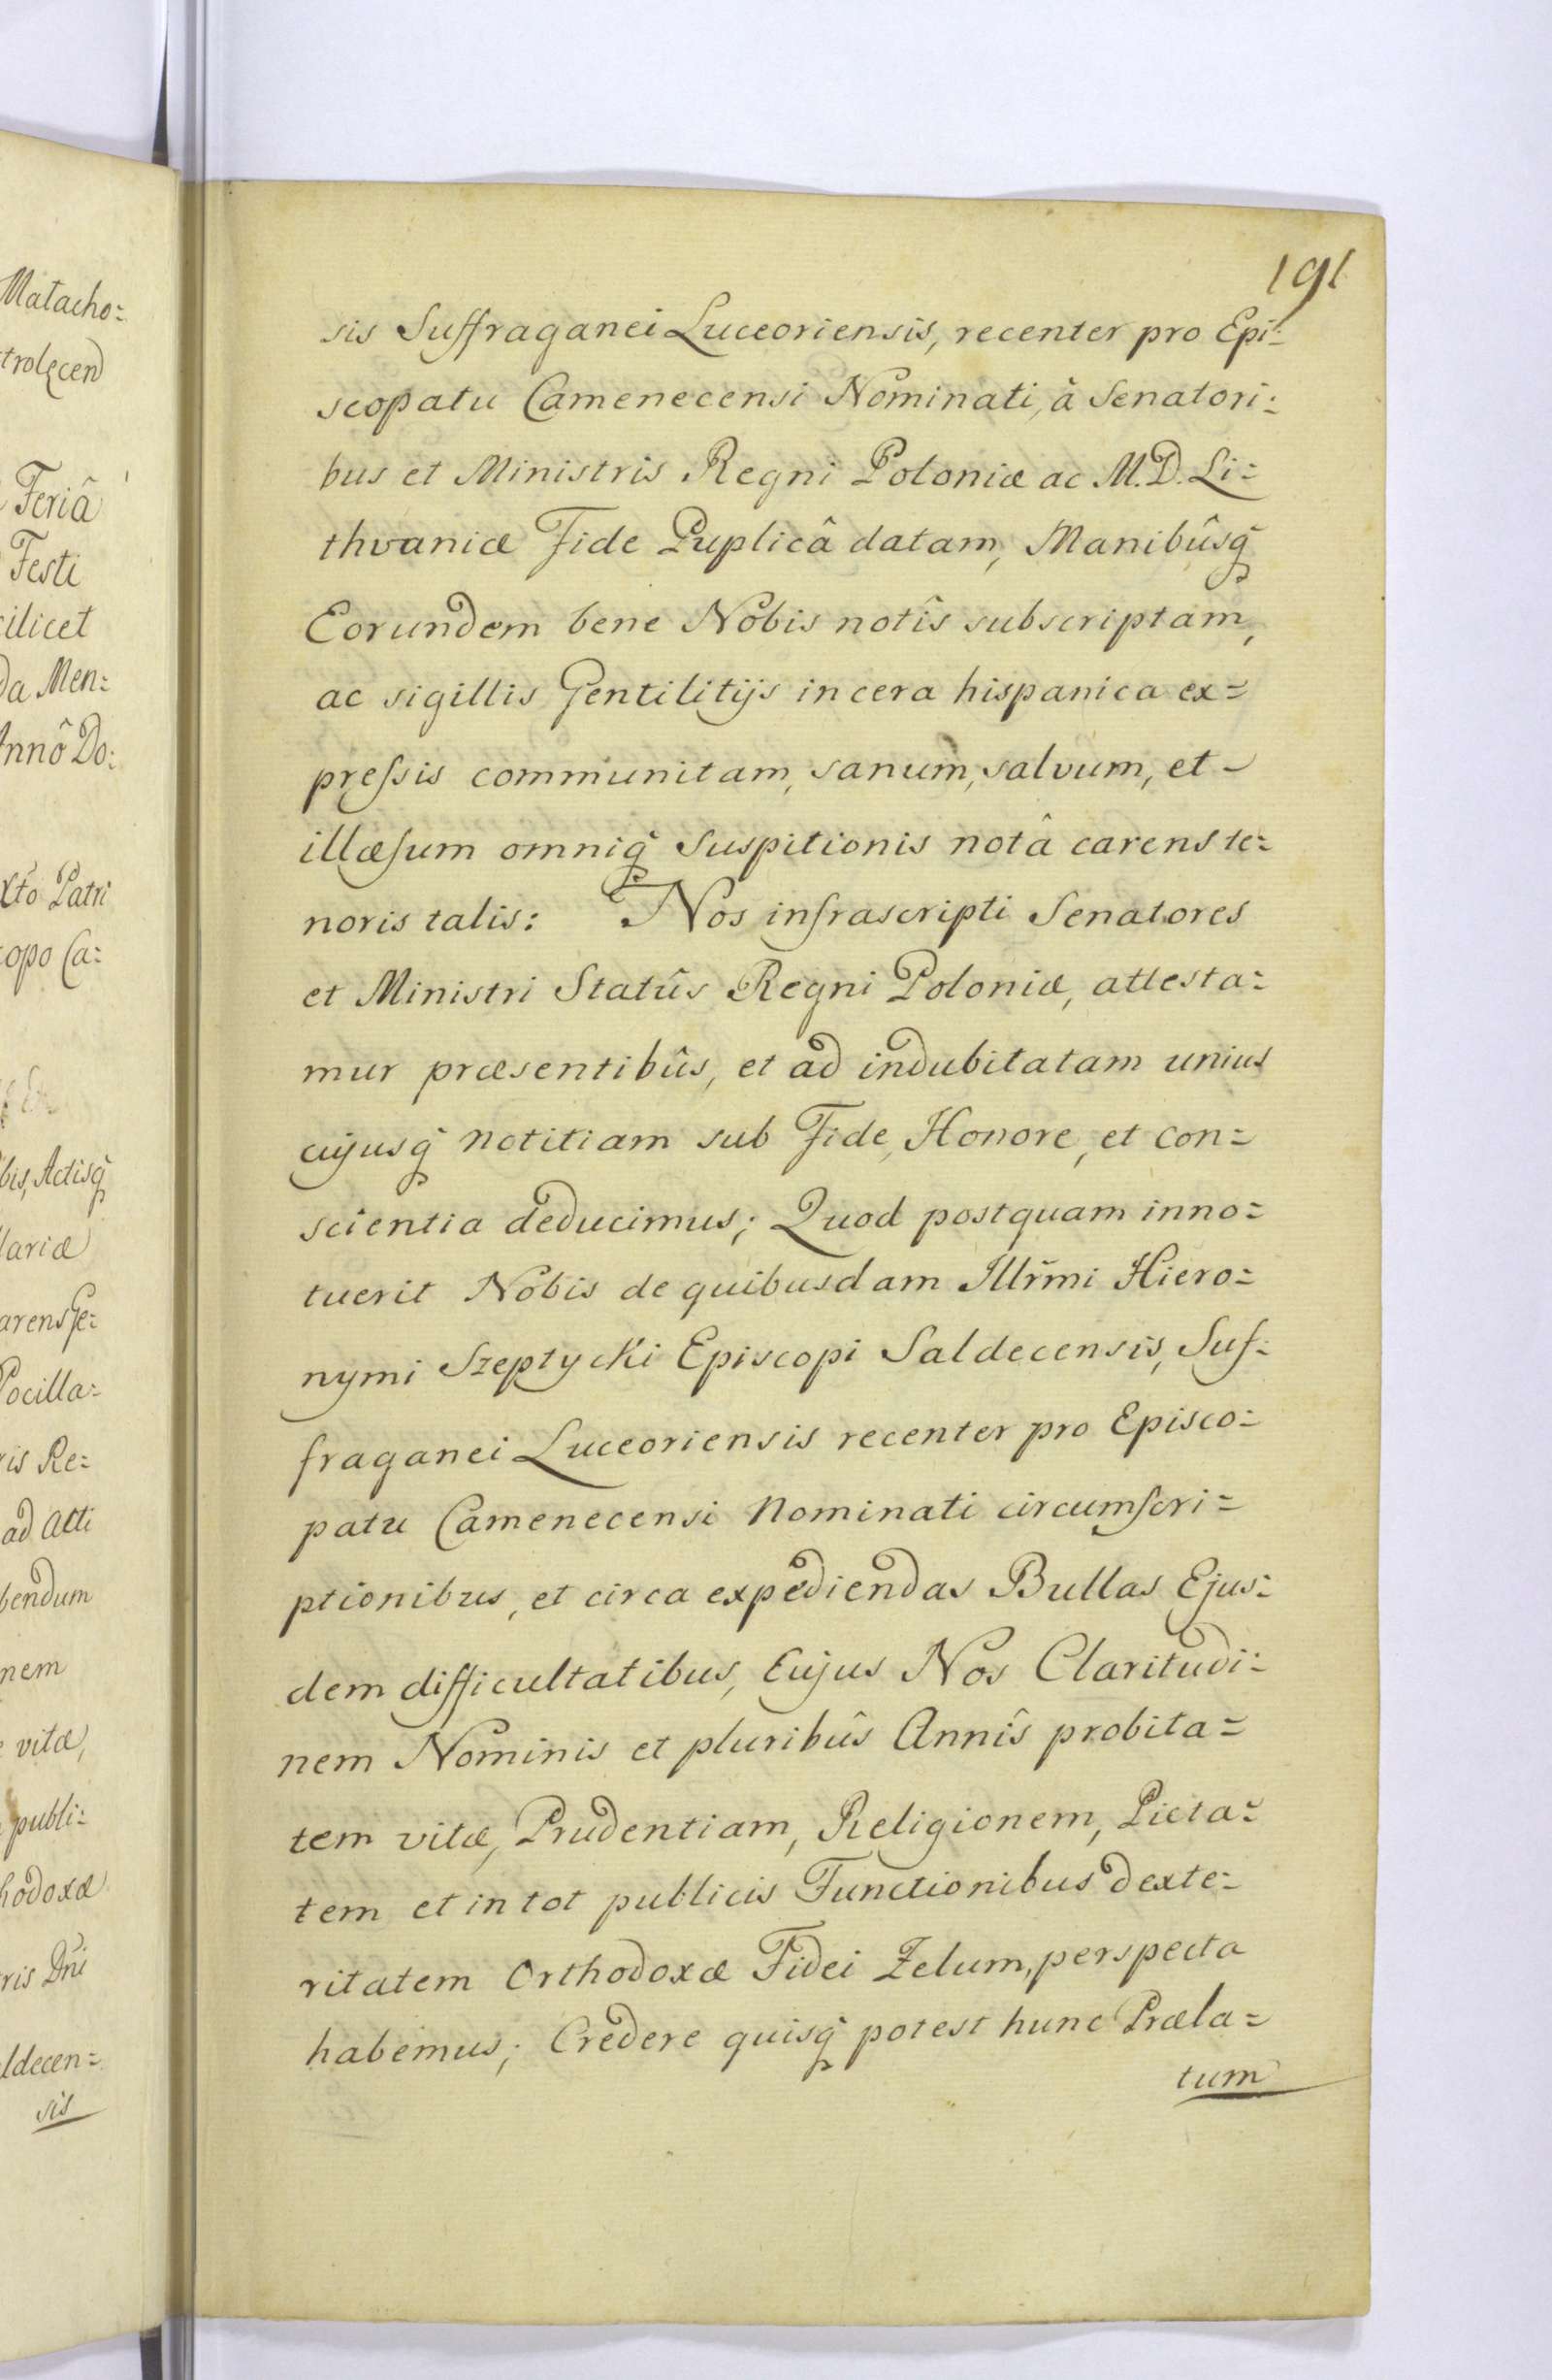 Matacho:
trolęcen
Feriâ
Festi
cilicet
da Men:
Annô Do:
xto Patri
copo Ca:
bis, Actisq̃
lariæ
arens Te:
Pocilla:
ris Re:
ad Acti
bendum
nem
vitæ,
publi:
hodoxæ
ris Dñi
ldecen:
sis
191
sis Suffraganei Luceoriensis, recenter pro Epi:
scopatu Camenecensi Nominati, à Senatori:
bus et Ministris Regni Poloniæ ac M.D. Li:
thvaniæ Fide Puplicâ datam, Manibûsq̃
Eorundem bene Nobis notîs subscriptam,
ac sigillis Gentilitijs in cera hispanica ex:
pręſsis communitam, sanum, salvum, et
illæſum omniq̃ suspitionis notâ carens te:
noris talis: Nos infrascripti Senatores
et Ministri Statûs Regni Poloniæ, attesta:
mur præsentibûs, et ad indubitatam unius
cujusq̃ notitiam sub Fide, Honore, et con:
scientia deducimus; Quod postquam inno:
tuerit Nobis de quibusdam Illr̃mi Hiero:
nymi Szeptycki Episcopi Saldecensis, Suf:
fraganei Luceoriensis recenter pro Episco:
patu Camenecensi Nominati circumſcri:
ptionibus, et circa expediendas Bullas Ejus:
dem difficultatibus, Cujus Nos Claritudi:
nem Nominis et pluribûs Annîs probita:
tem vitæ, Prudentiam, Religionem, Pieta:
tem et in tot publicis Functionibus dexte:
ritatem Orthodoxæ Fidei Zelum, perspecta
habemus; Credere quisq̃ potest hunc Præla:
tum